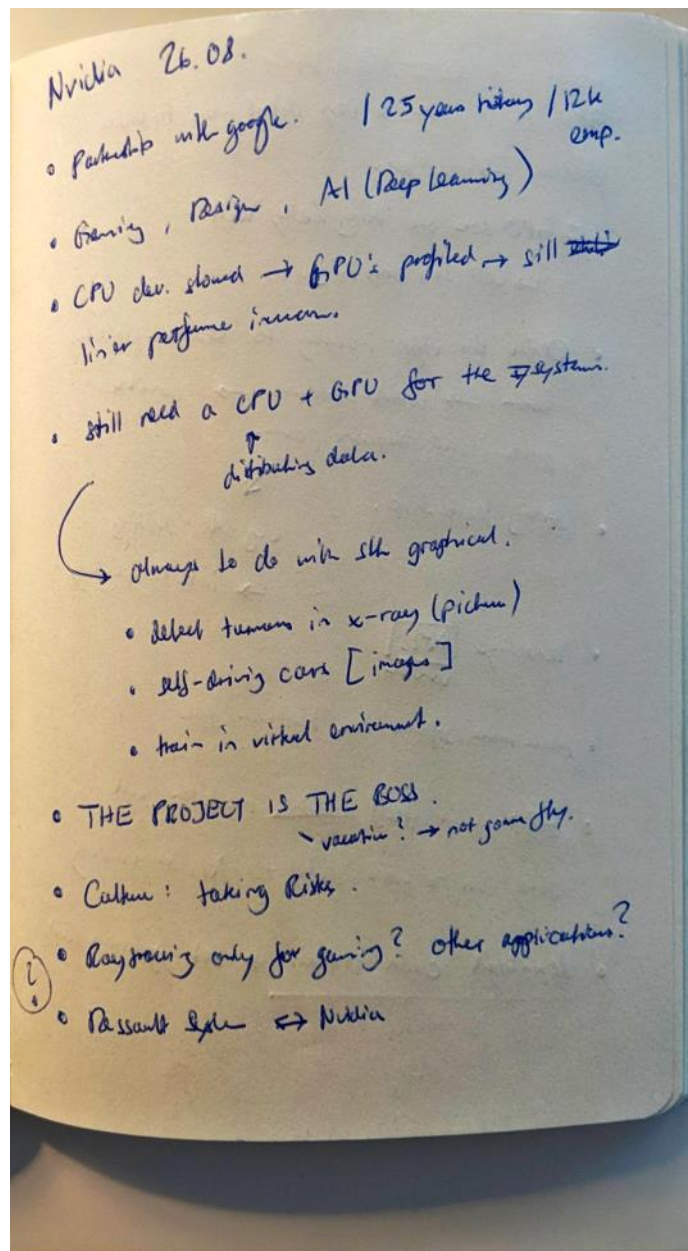 Nvidia 26.08.
• Partnership with google. / 25 years history / 12k
emp.
• Gaming, Design, AI (Deep Learning)
• CPU dev. slowed → GPU's profited → sill
linier perfomance increase.
• still need a CPU + GPU for the systems.
↑
distributing data.
→ always to do with sth graphical.
• detect tumors in x-ray (picture)
• self-driving cars [images]
• train in virtual environment.
• THE PROJECT IS THE BOSS.
\ vacation? → not gonna fly.
• Culture: taking Risks.
• Raytracing only for gaming? other applications?
?
• Dassault System ↔ Nvidia